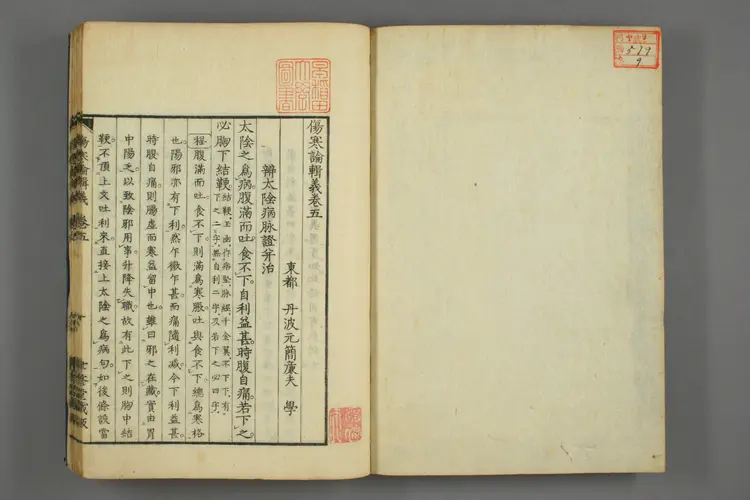 傷寒論輯義卷五
東都 丹波元簡廉夫 學
辨太陰病脉證并治
太陰之爲病腹滿而吐食不下自利益甚時腹自痛若下之
必胸下結鞕
程腹滿而吐食不下則滿爲寒脹吐與食不下總爲寒格
也陽邪亦有下利然乍微乍甚而痛隨利減今下利益甚
時腹自痛則腸虛而寒益留中也雖曰邪之在藏實由胃
中陽乏以致陰邪用事升降失職故有此下之則胸中結
鞕不頂上文吐利來直接上太陰之爲病句如後條設當
傷寒論輯義 卷五
579
9